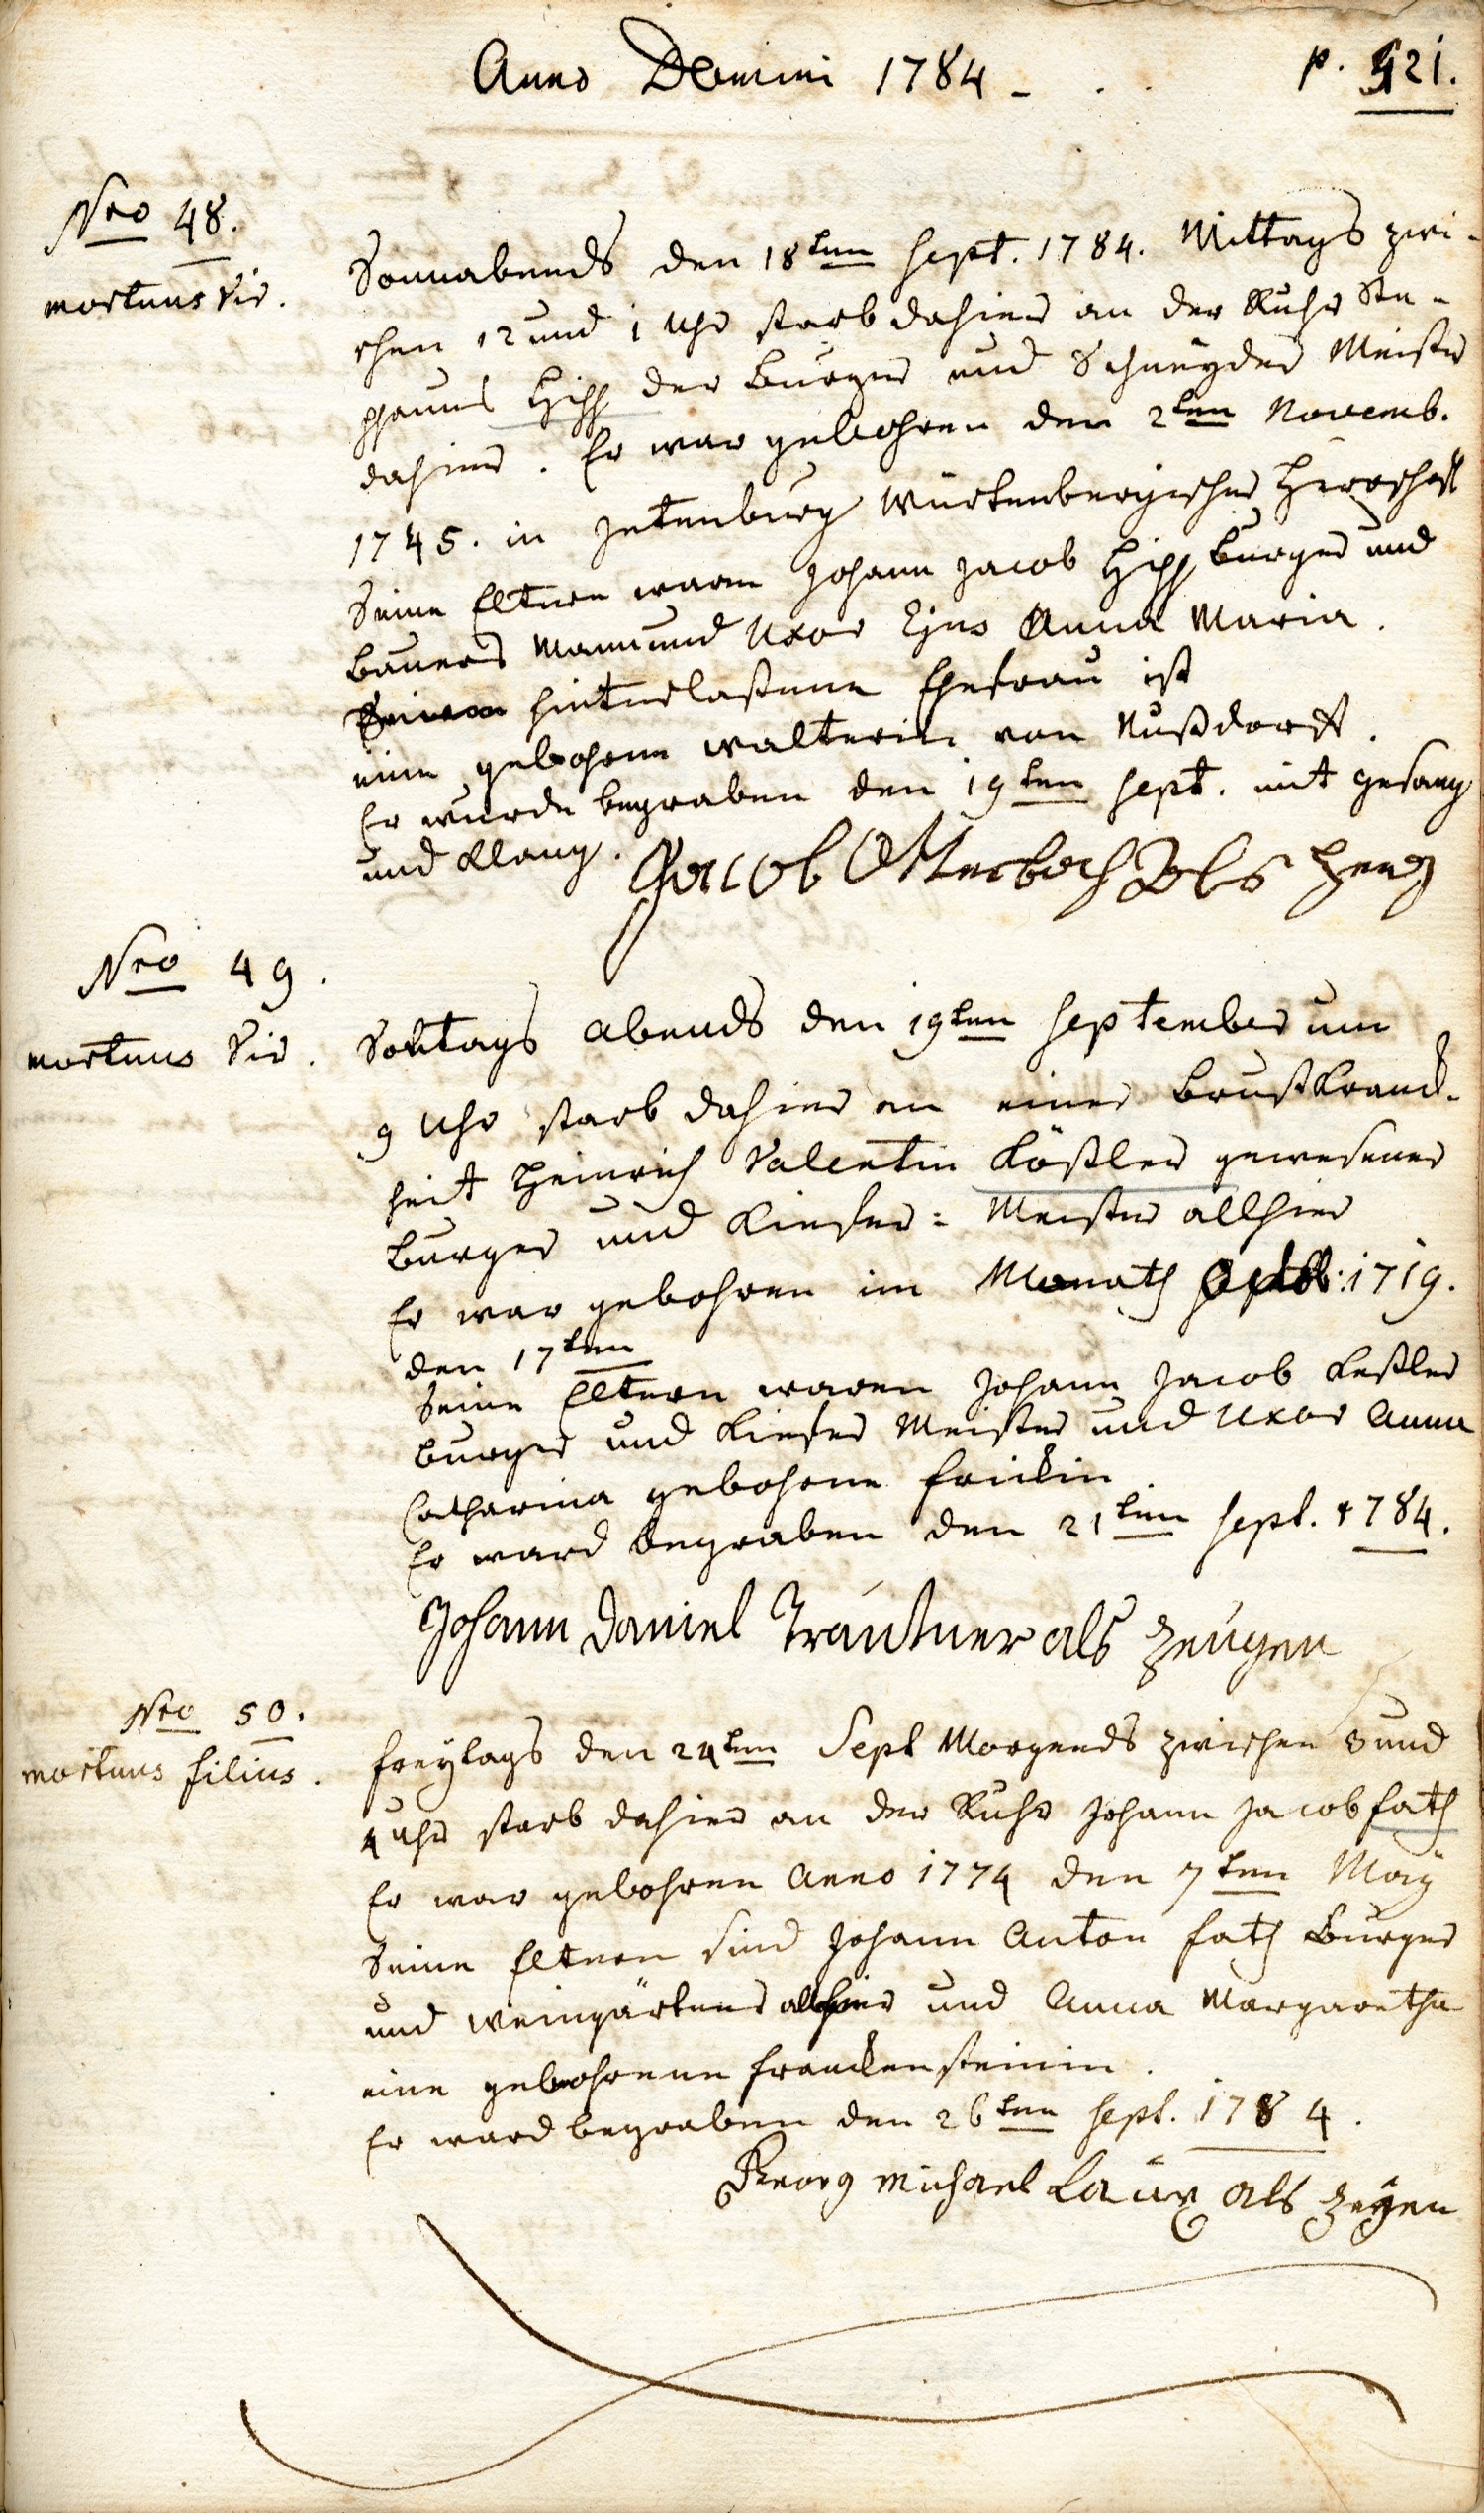 Anno Domini 1784 -
p. 521.
Nro 48.
mortuus vir.
Sonnabends den 18ten Sept. 1784. Mittags zwi-
schen 12 und 1 Uhr starb dahier an der Ruhr Ste-
phanus Hipp der Burger und Schneyder Meister
dahier. Er war gebohren den 2ten Novemb.
1745. in Jetenburg Würtenbergischer Herrschafft
Seine Eltern waren Johann Jacob Hipp Burger und
Bauers Mann und Uxor Ejus Anna Maria.
hinterlaßene Ehefrau ist
eine gebohrene Walterin von Nußdorff.
Er wurde begraben den 19ten Sept. mit Gesang
und Klang.
Jacob Otterbach als Zeug
Nro 49.
mortuus vir.
Sontags Abends den 19ten September um
9 Uhr starb dahier an einer Brustkranck-
heit Heinrich Valentin Kößler gewesener
Burger und Kiefer-Meister allhier
Er war gebohren im Monath 1719.
den 17ten
Seine Eltern waren Johann Jacob Keßler
Burger und Kiefer Meister und Uxor Anna
Catharina gebohrne Frickin.
Er ward begraben den 21ten Sept. 1784.
Johann Daniel Trautner als Zeugen
Nro 50.
mortuus filius.
Freytags den 24ten Sept Morgends zwischen 3 und
4 Uhr starb dahier an der Ruhr Johann Jacob Fath
Er war gebohren Anno 1774 den 7ten May
Seine Eltern sind Johann Anton Fath Burger
und Weingärtner allhier und Anna Margaretha
eine gebohrene Franckensteinin.
Er ward begraben den 26ten Sept. 1784.
Georg Michael Laux als Zeygen